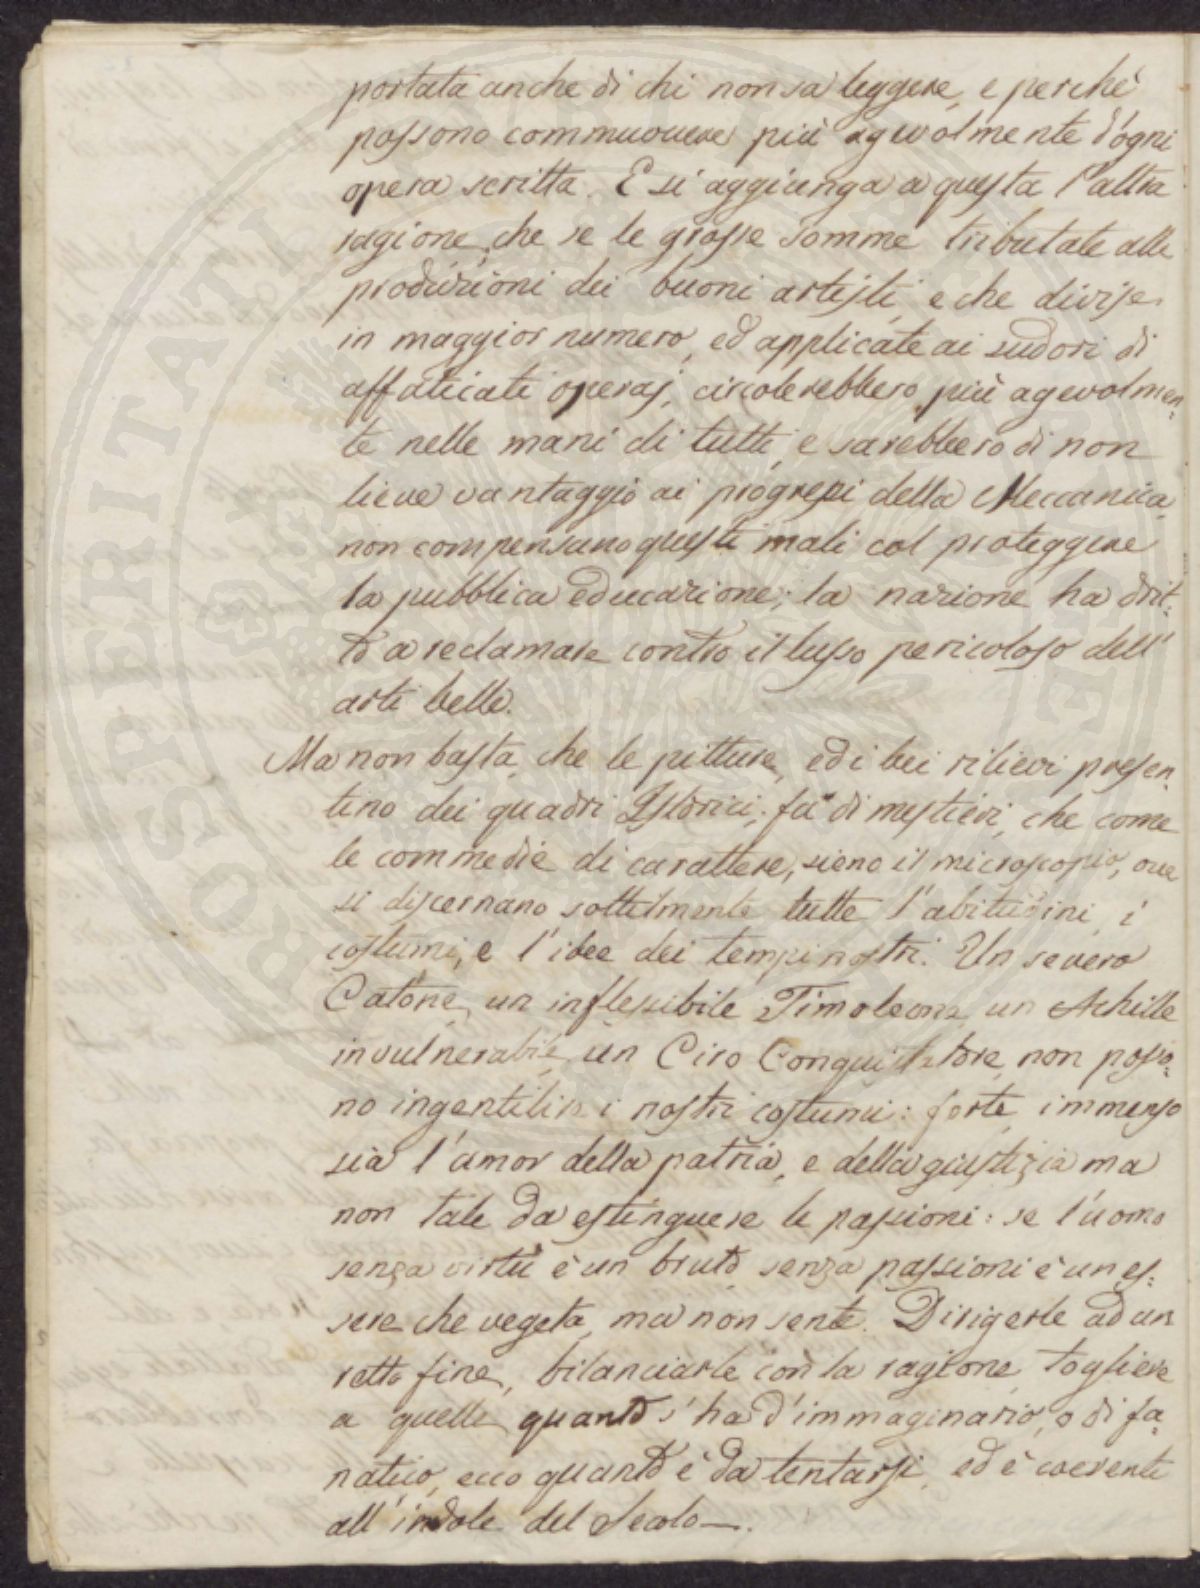 portata anche di chi non sa leggere, e perchè
possono commuovere più agevolmente d'ogni
opera scritta. E si aggiunga a questa l'altra
ragione, che se le grosse somme tributate alle
produzioni dei buoni artisti, e che divise
in maggior numero, ed applicate ai sudori di
affaticati operaj, circolerebbero più agevolmen-
te nelle mani di tutti, e sarebbero di non
lieve vantaggio ai progressi della Meccanica,
non compensano questi mali col proteggere
la pubblica educazione; la nazione ha drit-
to a reclamare contro il lusso pericoloso dell'
arti belle.
Ma non basta, che le pitture, ed i bei rilievi presen-
tino dei quadri Istorici; fa di mestieri, che come
le commedie di carattere, sieno il microscopio, ove
si discernano sottilmente tutte l'abitudini, i
costumi, e l'idee dei tempi nostri. Un severo
Catone, un inflessibile Timoleone, un Achille
invulnerabile, un Ciro Conquistatore, non posso-
no ingentilire i nostri costumi: forte, immenso
sia l'amor della patria, e della giustizia ma
non tale da estinguere le passioni: se l'uomo
senza virtù è un bruto, senza passioni è un es-
sere che vegeta, ma non sente. Dirigerle ad un
retto fine, bilanciarle con la ragione, togliere
a quelle quanto s'ha d'immaginario, o di fa-
natico, ecco quanto è da tentarsi, ed è coerente
all'indole del Secolo—.
PROSPERITATI